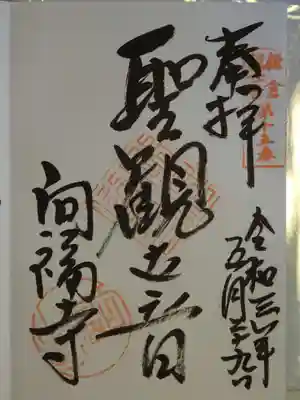 鎌倉第十五番
奉拝
令和三年五月二十九日
聖觀世音
向福寺